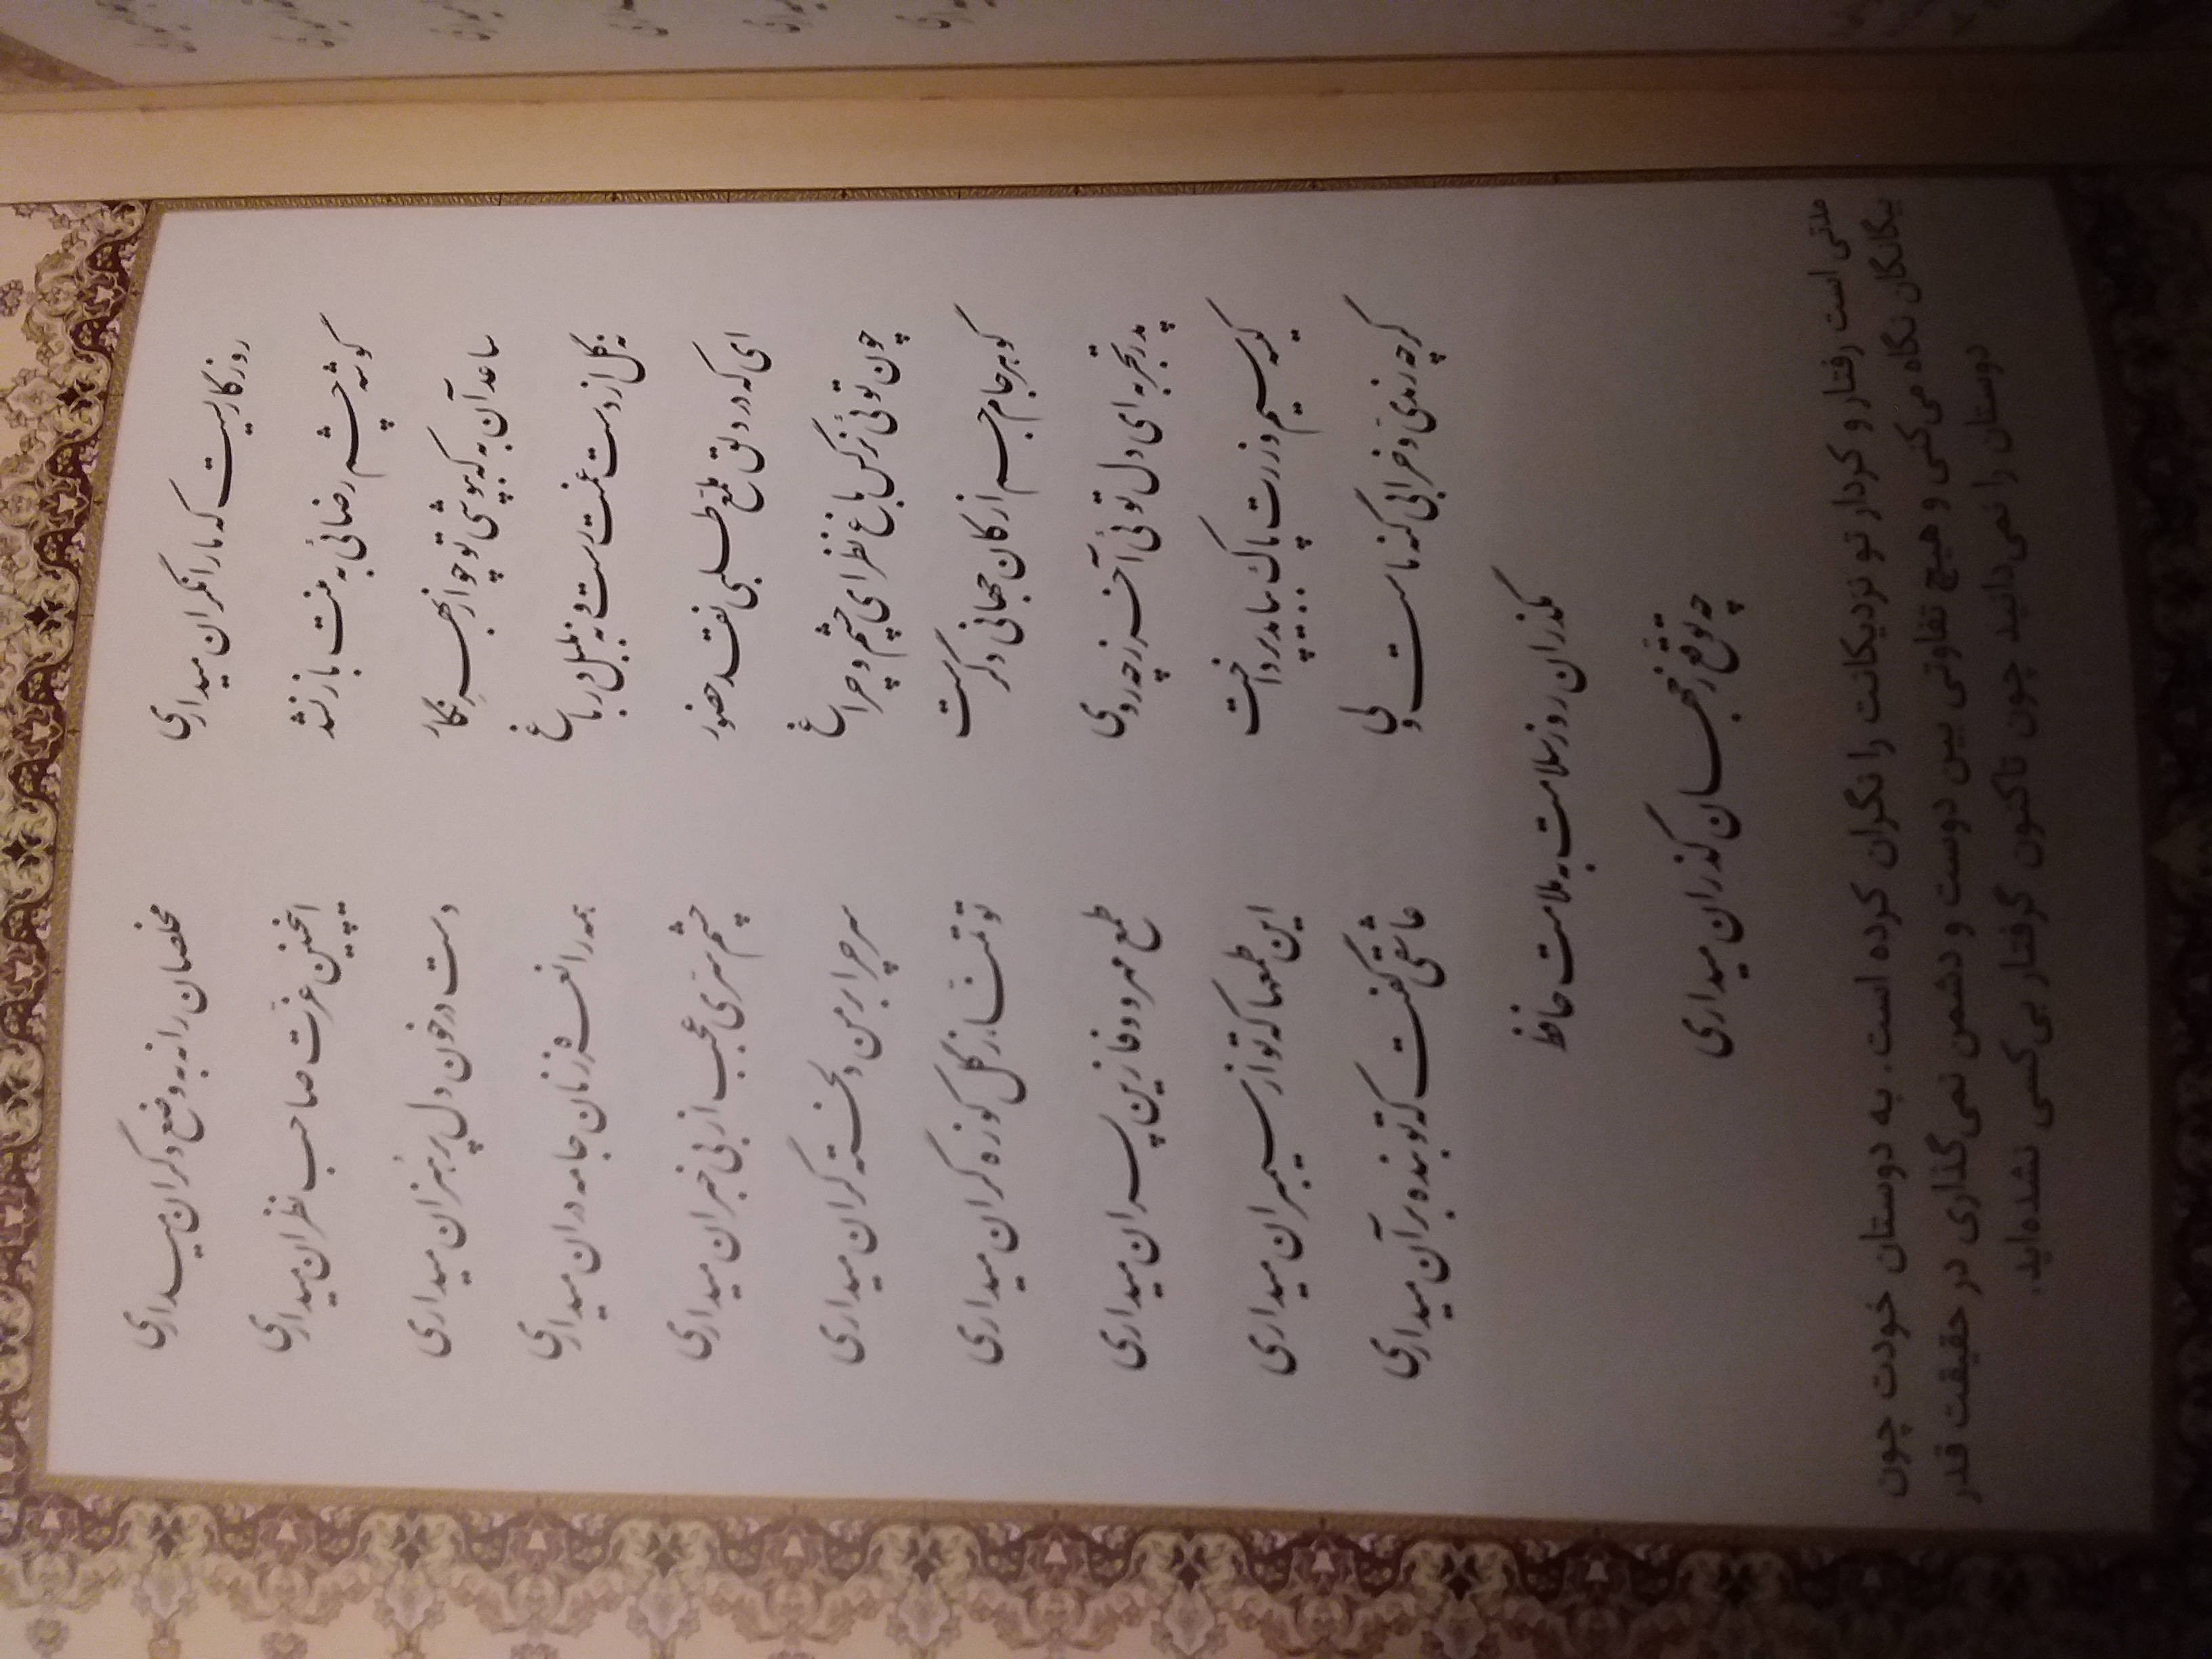 روزگاریست که ما را نگران میداری
مخلصان را نه به وضع دگران میداری
گوشه چشم رضائی به منت باز نشد
اینچنین عزت صاحب نظران میداری
ساعد آن به که بپوشی تو چو از بهر نگار
دست در خون دل پر هنران میداری
نه گل از دست غمت رست و نه بلبل در باغ
همه را نعره زنان جامه دران میداری
ای که در دلق ملمع طلبی نقد حضور
چشم سری عجب از بی خبران میداری
چون توئی نرگس باغ نظر ای چشم و چراغ
سر چرا بر من دلخسته گران میداری
گوهر جام جم از کان جهانی دگرست
تو تمنا ز گل کوزه گران میداری
پدر تجربه ای دل توئی آخر ز چه روی
طمع مهر و وفا زین پسران میداری
کیسه سیم و زرت پاک بباید پرداخت
این طمعها که تو از سیمبران میداری
گرچه رندی و خرابی گنه ماست ولی
عاشقی گفت که تو بنده بر آن میداری
مگذران روز سلامت به ملامت حافظ
چه توقع ز جهان گذران میداری
مدتی است رفتار و کردار تو نزدیکانت را نگران کرده است. به دوستان خودت چون
بیگانگان نگاه می‌کنی و هیچ تفاوتی بین دوست و دشمن نمی‌گذاری در حقیقت قدر
دوستان را نمی‌دانید چون تاکنون گرفتار بی‌کسی نشده‌اید.